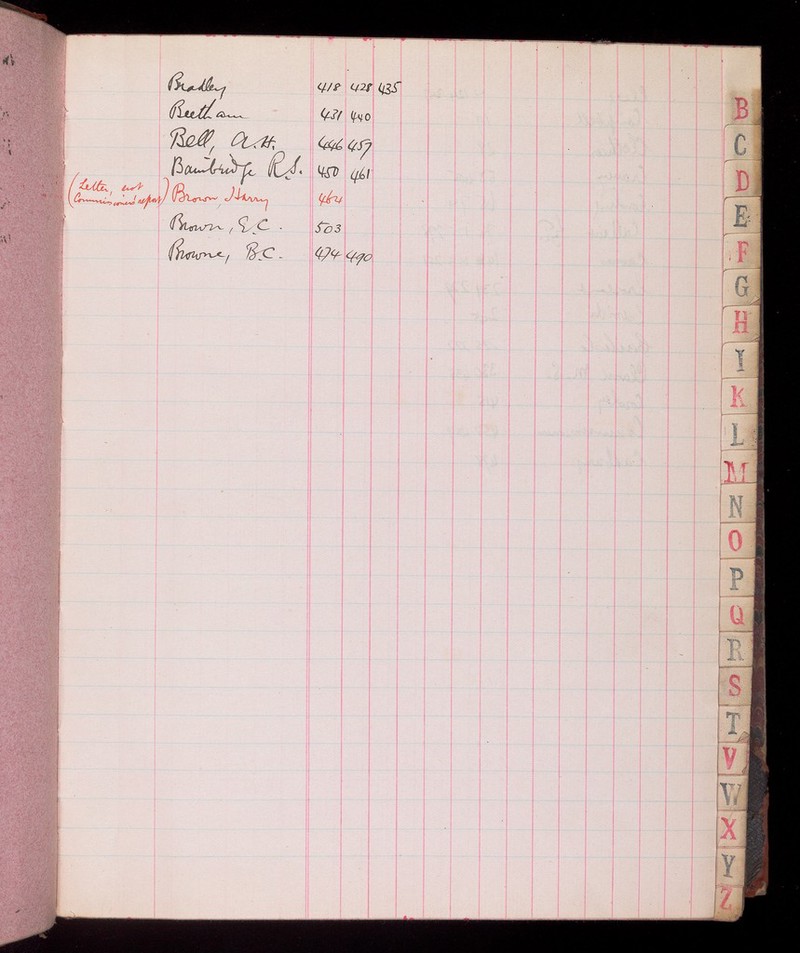 Bradley 418 428 435
Beetham 431 440
Bell, A.H. 446 457
Bainbridge R.S. 450 461
(Letter, not Commissioner's report) Brown, Harry 464
Brown, E.C. 503
Browne, B.C. 474 490
B
C
D
E
F
G
H
I
K
L
M
N
O
P
Q
R
S
T
V
W
X
Y
Z